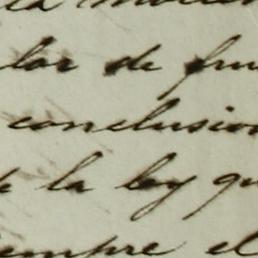 lar de
conclusion
de la ley qu
siempre el